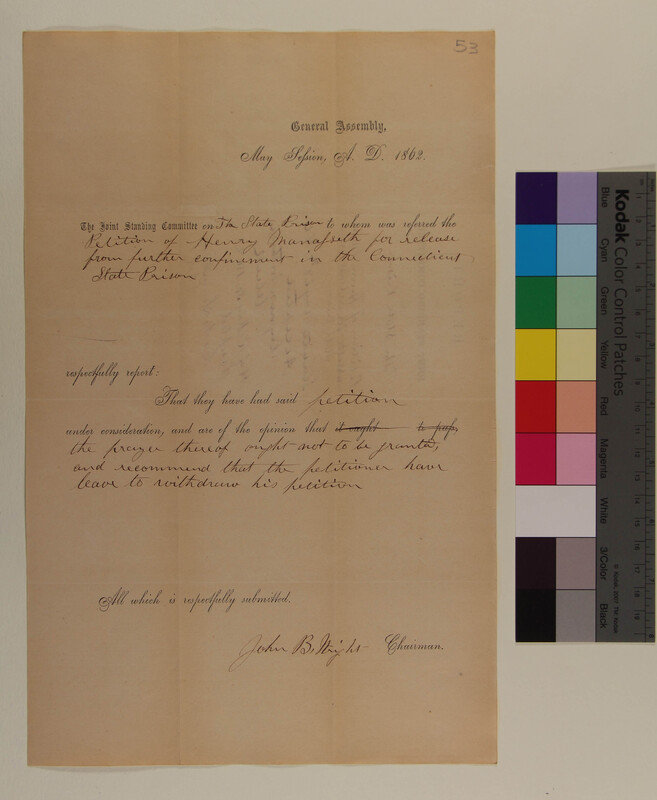 53
General Assembly,
May Session, A. D. 1862.
The Joint Standing Committee on The State Prison to whom was referred the
Petition of Henry Manasseth for release
from further confinement in the Connecticut
State Prison
respectfully report:
That they have had said petition
under consideration, and are of the opinion that it ought to pass,
the prayer thereof ought not to be granted,
and recommend that the petitioner have
leave to withdraw his petition
All which is respectfully submitted.
John B. Wright Chairman.
Kodak Color Control Patches
Blue
Cyan
Green
Yellow
Red
Magenta
White
3/Color
Black